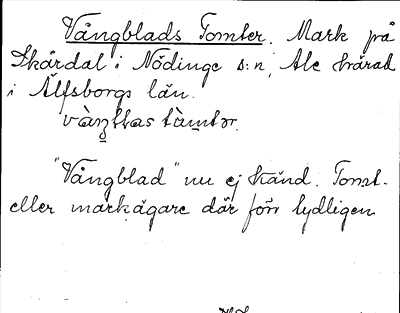 Vångblads Tomter. Mark på
Skårdal i Nödinge s:n, Ale härad
i Älfsborgs län.
"Vångblad" nu ej känd. Tomt-
eller markägare där förr tydligen